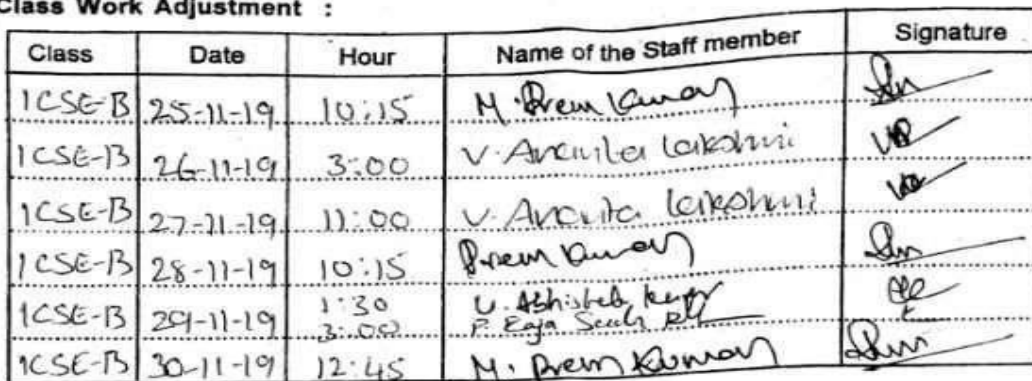 Class Work Adjustment :
Class Date Hour Name of the Staff member Signature
1CSE-B 25-11-19 10:15 M. Prem Kumar
1CSE-B 26-11-19 3:00 V. Ananta Lakshmi
1CSE-B 27-11-19 11:00 V. Ananta Lakshmi
1CSE-B 28-11-19 10:15 Prem Kumar
1CSE-B 29-11-19 1:30 U. Abhishek
3:00 P. Raja
1CSE-B 30-11-19 12:45 M. Prem Kumar